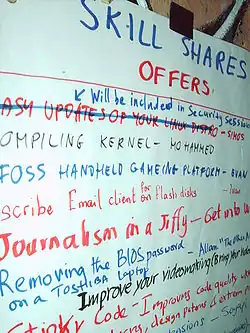 SKILL SHARES
OFFERS
↙ Will be included in Security sess
ASY UPDATES OF YOUR LINUX DISTRO - SIMOS
OMPILING KERNEL - MOHAMMED
FOSS HANDHELD GAMEING PLATFORM - EVAN
scribe Email client for on flash disks -
Journalism in a Jiffy - Get into
Removing the BIOS password - Allan "The
on a TOSHIBA laptop
Improve your videomaking (Bring Your
Stinky Code - Improves code quality
design patterns & extreme